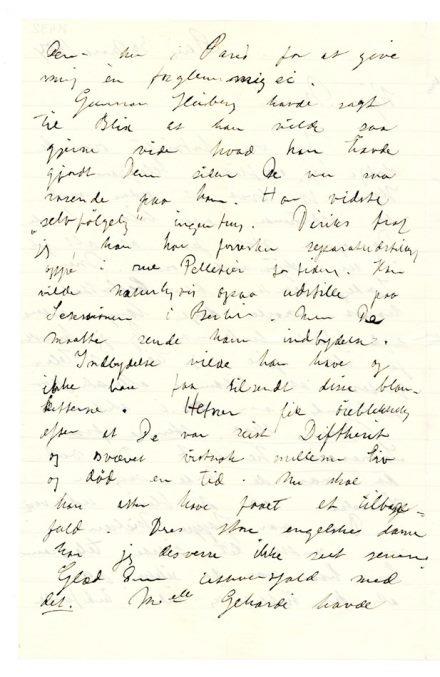 Dem her i Paris for at give
mig en forglemmigei.
Gunnar Heiberg havde sagt
til Blix at han vilde saa
gjerne vide hvad han havde
gjordt Dem siden De var saa
rasende paa ham. Han vidste
"selvfølgelig" ingenting. Diriks traf
jeg, han har forresten separatudstilling
oppe i rue Pelletier for tiden. Han
vilde naturligvis ogsaa udstille paa
Secessionen i Berlin. Men De
maatte sende ham indbydelse.
Indbydelse vilde han have og
ikke bare faa tilsendt disse blan-
ketterne. Hefner fik øieblikkelig
efter at De var reist Diftherit
og svævet virkelig mellem liv
og død en tid. Nu skal
han atter have faaet et tilbage-
fald. Deres store engelske dame
har jeg desværre ikke seet senere.
Glæd Dem i
det. Melle Gehardi havde